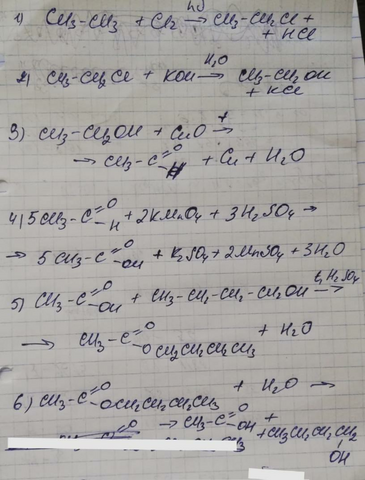 hν
1) CH3-CH3 + Cl2 → CH3-CH2Cl +
+ HCl
H2O
2) CH3-CH2Cl + KOH → CH3-CH2OH
+ KCl
3) CH3-CH2OH + CuO t→
→ CH3-C=O H + Cu + H2O
4) 5CH3-C=O -H + 2KMnO4 + 3H2SO4 →
→ 5CH3-C=O -OH + K2SO4 + 2MnSO4 + 3H2O
5) CH3-C=O -OH + CH3-CH2-CH2-CH2OH t, H2SO4 →
→ CH3-C=O OCH2CH2CH2CH3 + H2O
6) CH3-C=O OCH2CH2CH2CH3 + H2O →
→ CH3-C=O -OH +
+ CH3CH2CH2CH2
OH